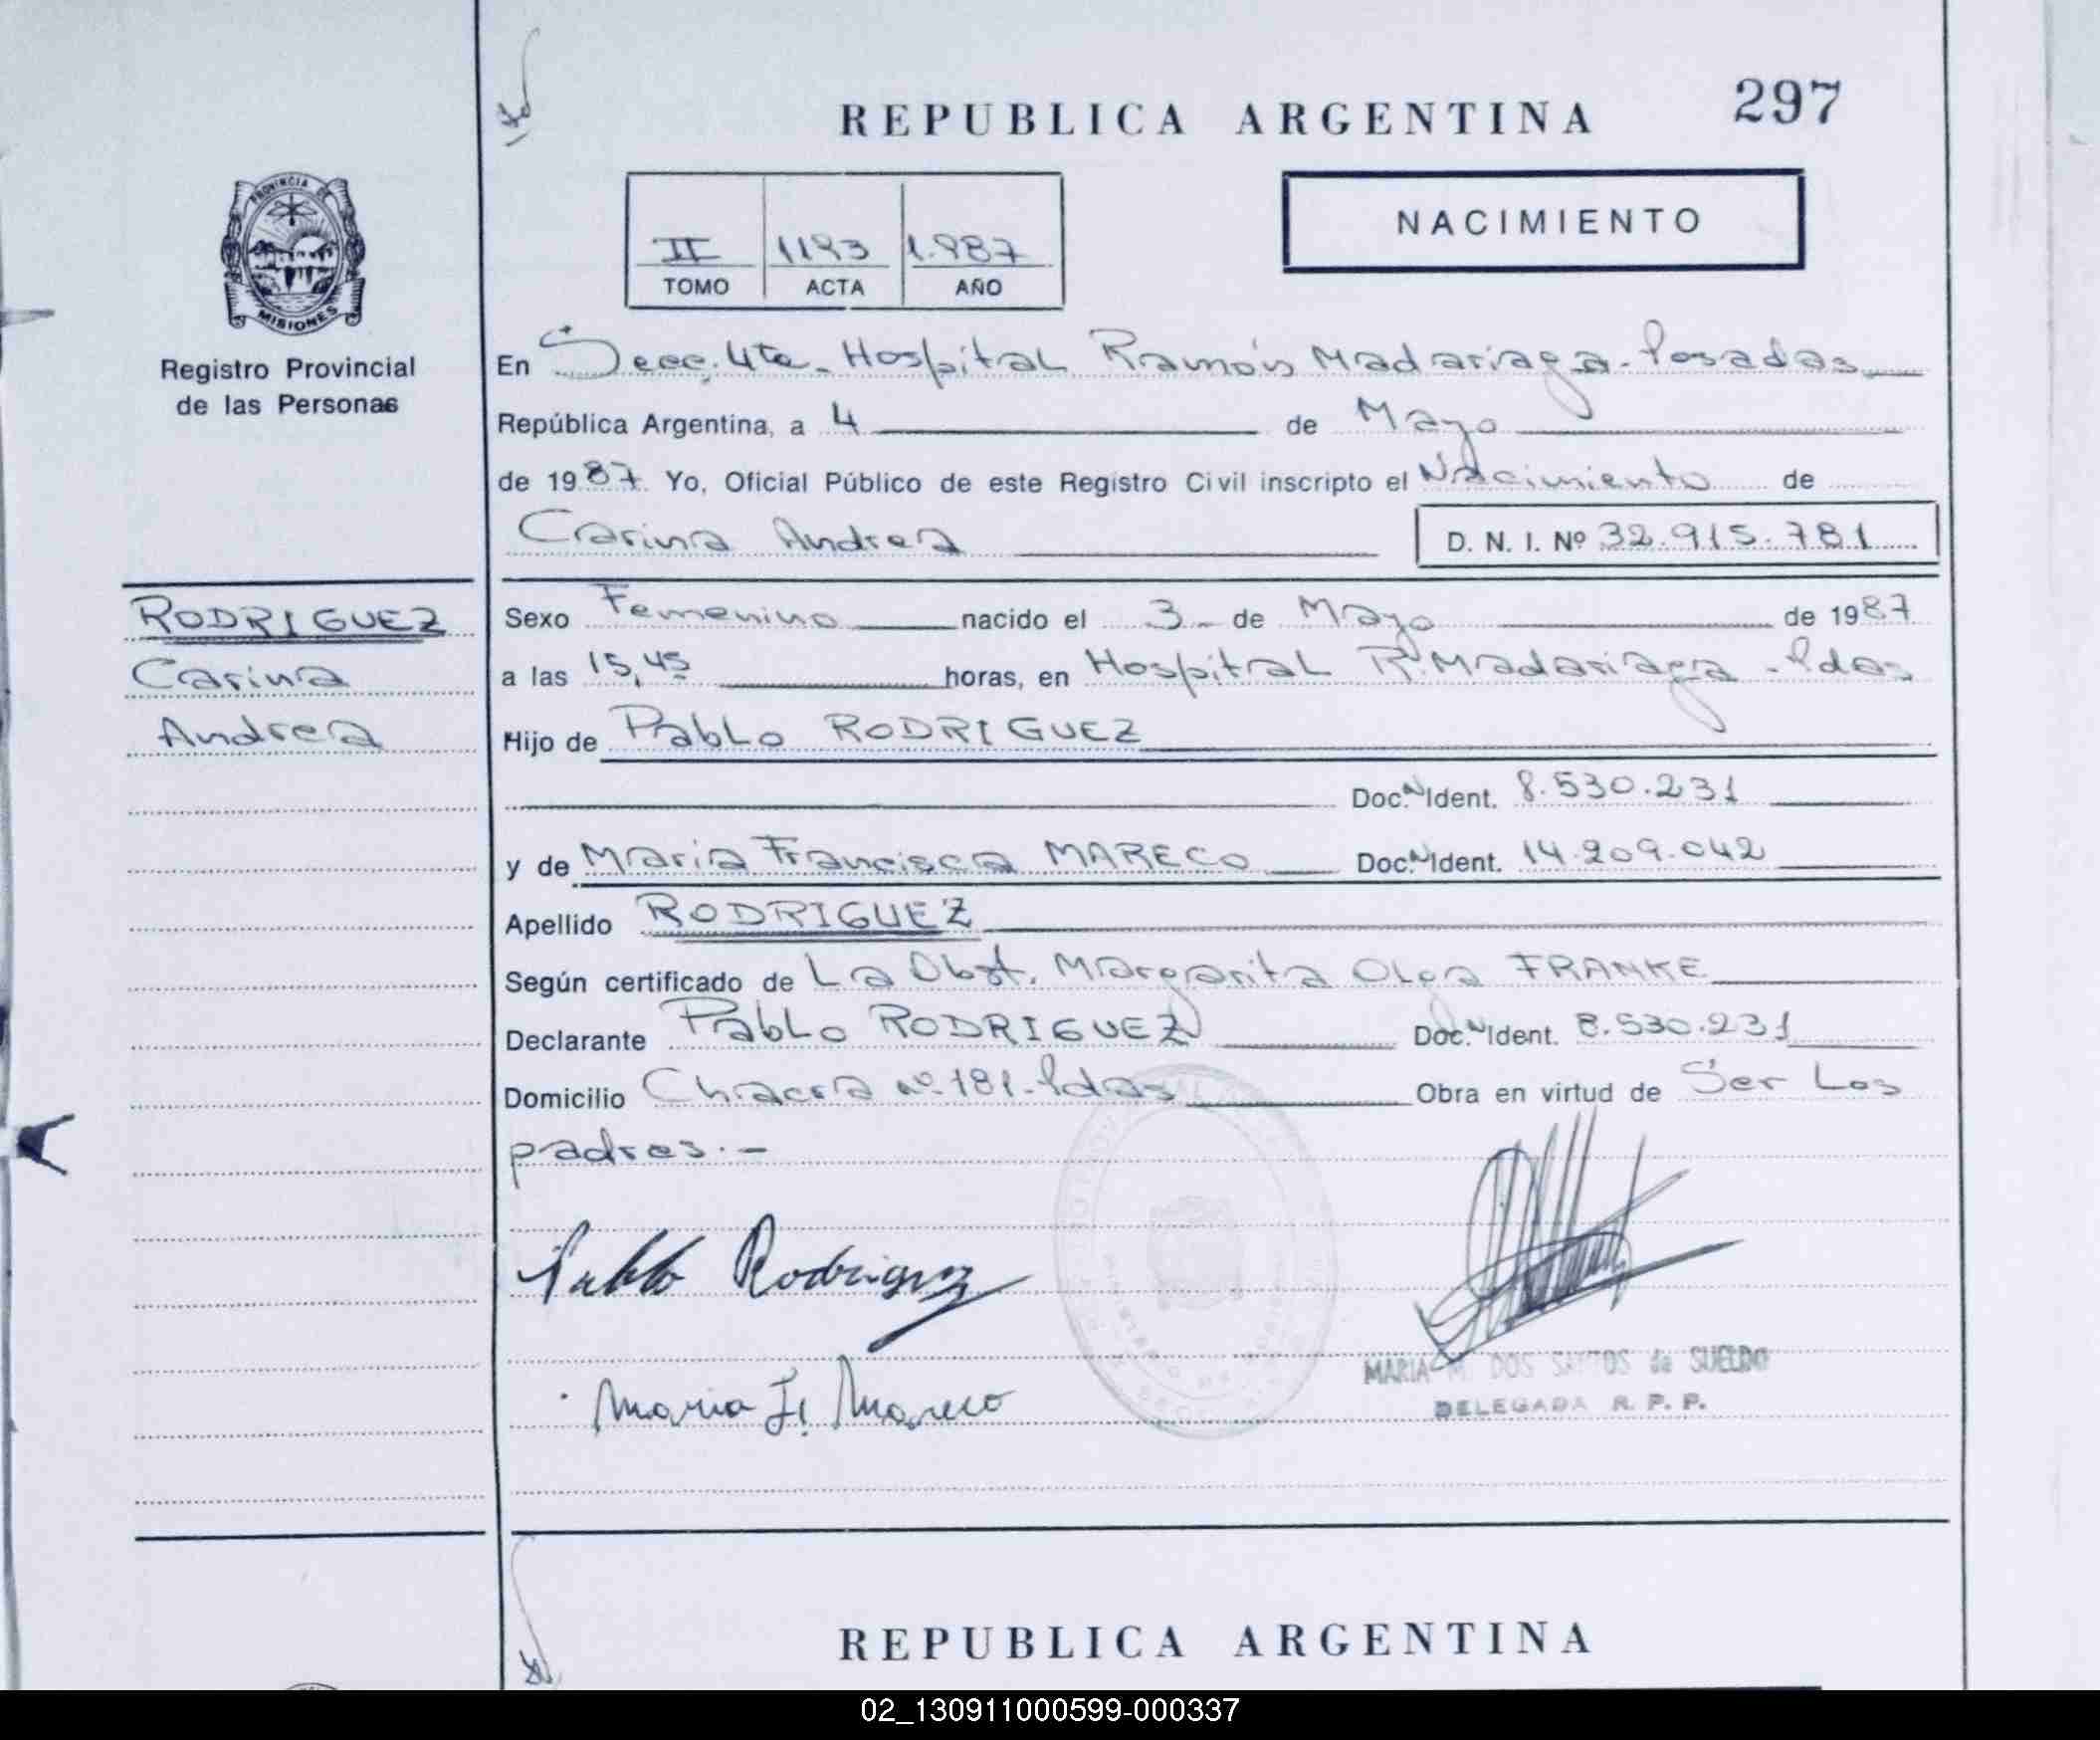 REPUBLICA ARGENTINA 297
PROVINCIA DE
MISIONES
Registro Provincial
de las Personas
II 1193 1.987
TOMO ACTA AÑO
NACIMIENTO
En Secc. 4ta. Hospital Ramón Madariaga - Posadas
República Argentina, a 4 de Mayo
de 1987. Yo, Oficial Público de este Registro Civil inscripto el Nacimiento de
Carina Andrea D. N. I. Nº 32.915.781
RODRIGUEZ
Carina
Andrea
Sexo Femenino nacido el 3 de Mayo de 1987
a las 15,45 horas, en Hospital R. Madariaga - Pdas
Hijo de Pablo RODRIGUEZ
Doc. N Ident. 8.530.231
y de Maria Francisca MARECO Doc. N Ident. 14.209.042
Apellido RODRIGUEZ
Según certificado de La Obst. Margarita Olga FRANKE
Declarante Pablo RODRIGUEZ Doc. N Ident. 8.530.231
Domicilio Chacra nº 181 - Pdas Obra en virtud de Ser Los
padres.-
Pablo Rodriguez
Maria F. Mareco
MARIA M. DOS SANTOS de SUELDO
DELEGADA R. P. P.
REPUBLICA ARGENTINA
02_130911000599-000337